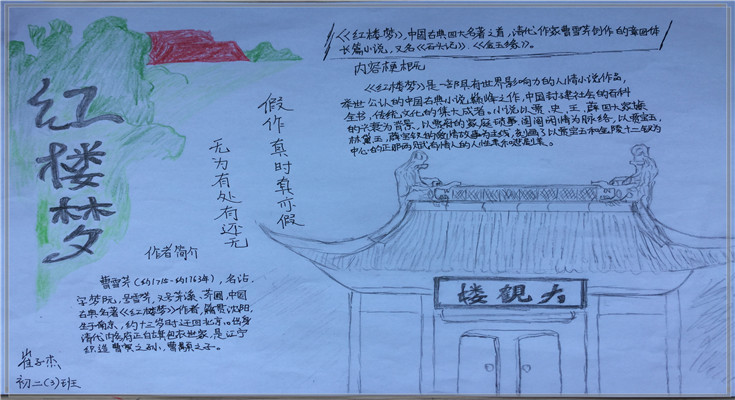 红楼梦
《红楼梦》,中国古典四大名著之首,清代作家曹雪芹创作的章回体
长篇小说,又名《石头记》、《金玉缘》。
内容梗概
《红楼梦》是一部具有世界影响力的人情小说作品,
举世公认的中国古典小说巅峰之作,中国封建社会的百科
全书,传统文化的集大成者。小说以贾、史、王、薛四大家族
的兴衰为背景,以贾府的家庭琐事、闺阁闲情为脉络,以贾宝玉、
林黛玉、薛宝钗的爱情故事为主线,刻画了以贾宝玉和金陵十二钗为
中心的正邪两赋有情人的人性美和悲剧美。
假作真时真亦假
无为有处有还无
作者简介
曹雪芹(约1715-约1763年),名沾,
字梦阮,号雪芹,又号芹溪、芹圃,中国
古典名著《红楼梦》作者,籍贯沈阳,
生于南京,约十三岁时迁回北方。出身
清代内务府正白旗包衣世家,是江宁
织造曹寅之孙,曹顒之子。
大觀楼
初二(3)班